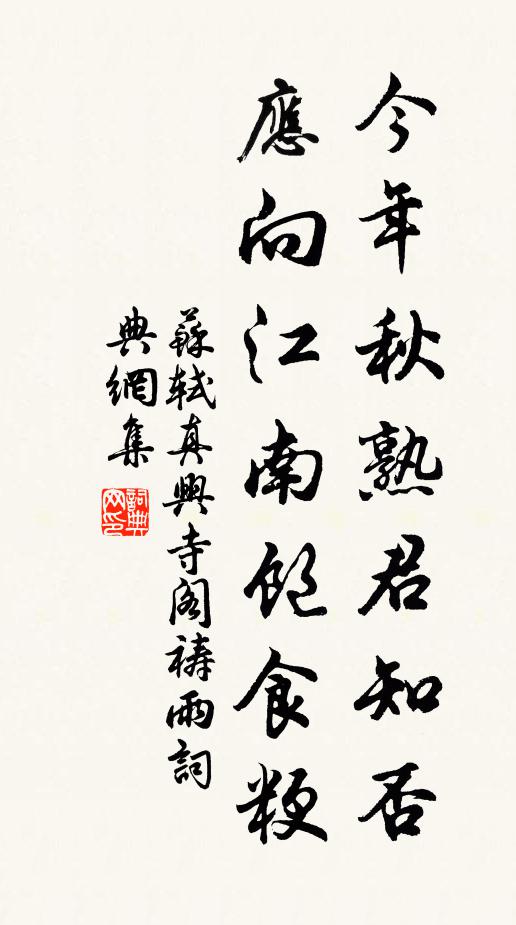 今年秋熟君知否
應向江南飽食粳
蘇軾真興寺閣禱雨詞
典網集
詞典网印